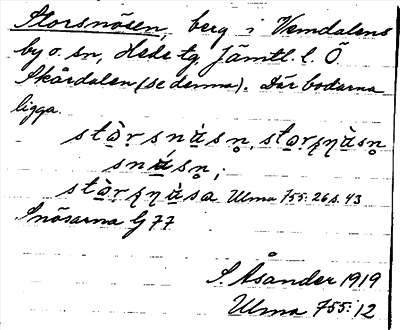 Storsnösen, berg i Vemdalens
by o. sn, Hede tg, Jämtl. l. Ö
Skärdalen (se denna). Där bodarna
ligga.
stɑ̀r snɑ́sn̥, stɑrʂɳɑ̀sn̥
snɑ́sn̥;
stɑ̀rʂɳɑ̀sa Ulma 755:26 s. 43
Snösarna G 77
S. Åsander 1919
Ulma 755:12